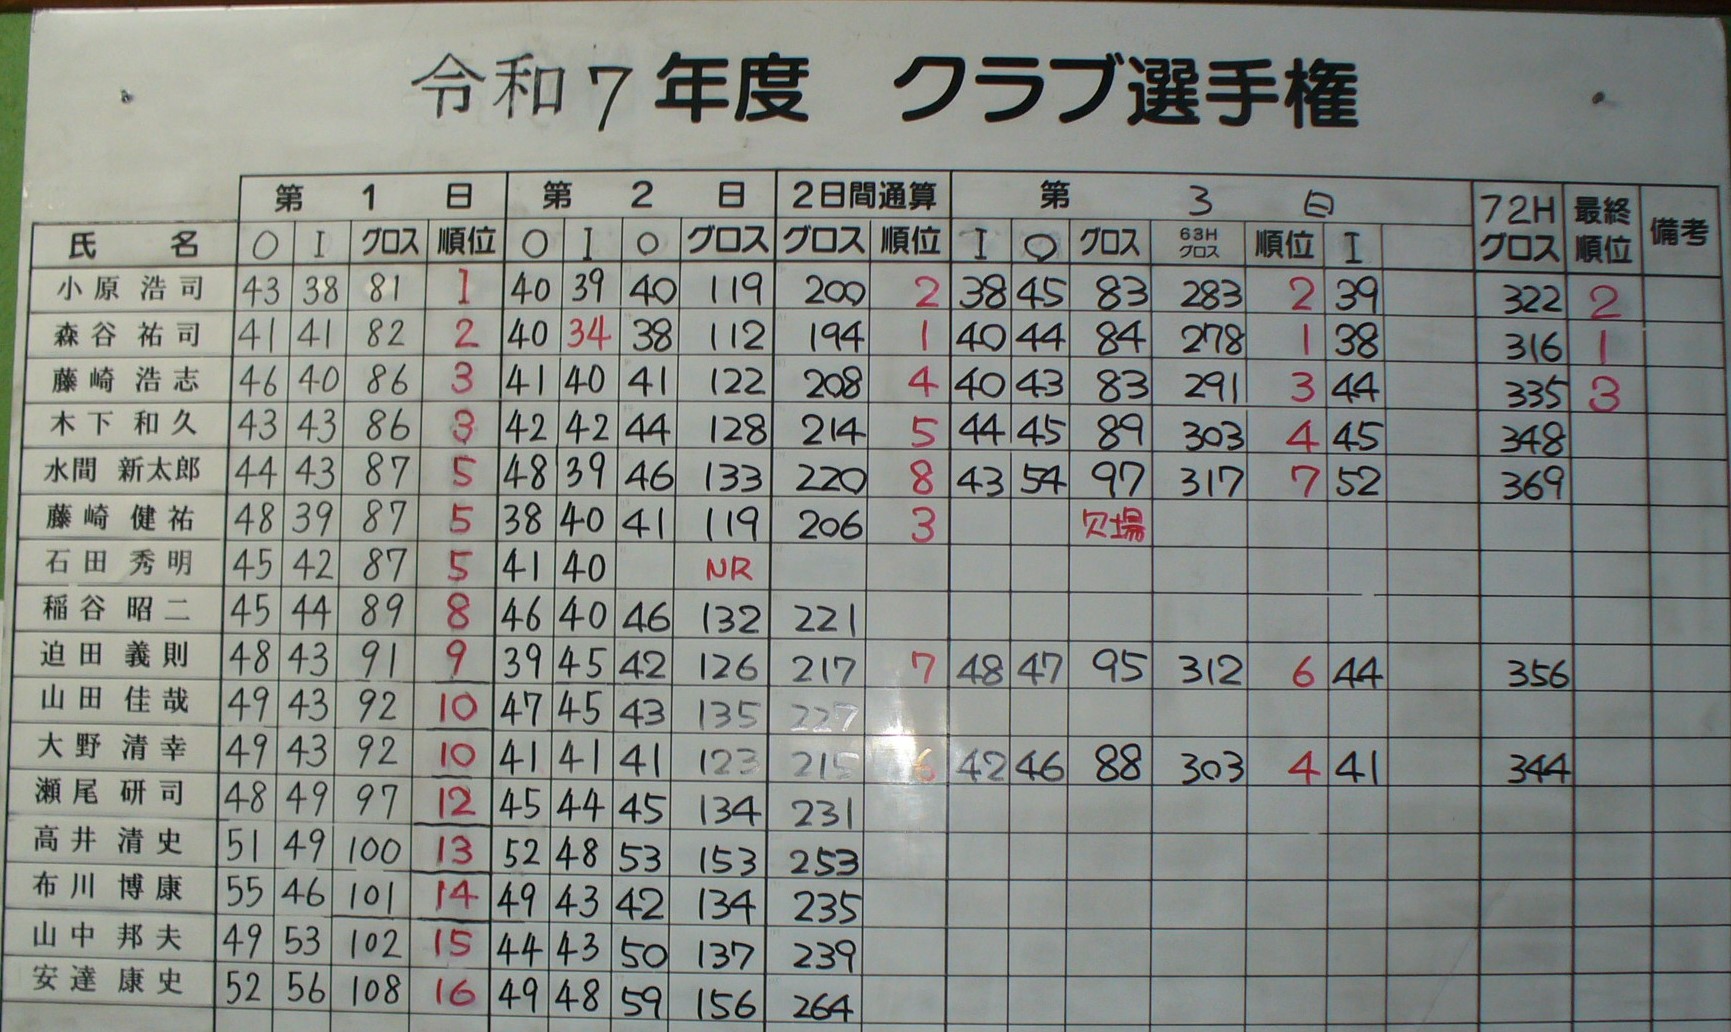 令和7年度 クラブ選手権
第1日 第2日 2日間通算 第3日 72Hグロス 最終順位 備考
氏名 O I グロス 順位 O I O グロス グロス 順位 I O グロス 63Hグロス 順位 I
小原浩司 43 38 81 1 40 39 40 119 200 2 38 45 83 283 2 39 322 2
森谷祐司 41 41 82 2 40 34 38 112 194 1 40 44 84 278 1 38 316 1
藤崎浩志 46 40 86 3 41 40 41 122 208 4 40 43 83 291 3 44 335 3
木下和久 43 43 86 3 42 42 44 128 214 5 44 45 89 303 4 45 348
水間新太郎 44 43 87 5 48 39 46 133 220 8 43 54 97 317 7 52 369
藤崎健祐 48 39 87 5 38 40 41 119 206 3 欠場
石田秀明 45 42 87 5 41 40 NR
稲谷昭二 45 44 89 8 46 40 46 132 221
迫田義則 48 43 91 9 39 45 42 126 217 7 48 47 95 312 6 44 356
山田佳哉 49 43 92 10 47 45 43 135 227
大野清幸 49 43 92 10 41 41 41 123 215 6 42 46 88 303 4 41 344
瀬尾研司 48 49 97 12 45 44 45 134 231
高井清史 51 49 100 13 52 48 53 153 253
布川博康 55 46 101 14 49 43 42 134 235
山中邦夫 49 53 102 15 44 43 50 137 239
安達康史 52 56 108 16 49 48 59 156 264